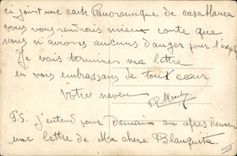 ci joint une carte Panoramique de casablanca
vous vous rendrez mieux conte que
nous n'avons aucuns danger pour l'
Je vais terminer ma lettre
en vous embrassant de tout cœur
Votre neveu
P.S. j'entend pour demain ou apres demain
une lettre de Ma chere Blanquita